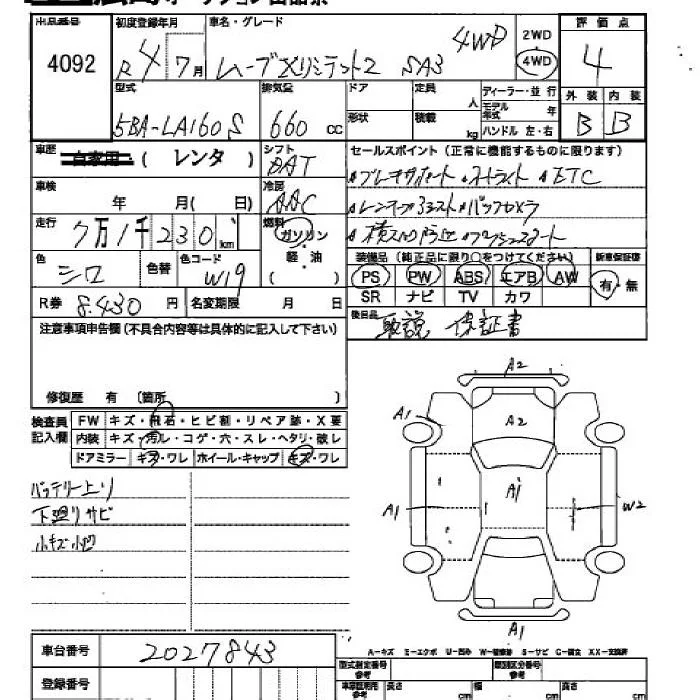 出品番号 初度登録年月 車名・グレード 2WD 評価点
4092 R4年7月 ムーブXリミテッド2 SA3 4WD 4WD 4
型式 排気量 ドア 定員 人 ディーラー・並行 外装 内装
5BA-LA160S 660 cc 形状 積載 kg モデル年式 年 ハンドル 左・右 B B
車歴 自家用・( レンタ ) シフト DAT セールスポイント(正常に機能するものに限ります)
車検 年 月( 日) 冷房 AAC
走行 7万1千230km 燃料 ガソリン
軽・油
( )
色 シロ 色替 色コード W19
装備品(純正品に限り○をつけてください) 新車保証書
PS PW ABS エアB AW 有・無
SR ナビ TV カワ
R券 8.430 円 名変期限 月 日 後日品 取説 保証書
注意事項申告欄(不具合内容等は具体的に記入して下さい)
修復歴 有 (箇所 )
検査員記入欄 FW キズ・飛石・ヒビ割・リペア跡・X要
内装 キズ・汚レ・コゲ・穴・スレ・ヘタリ・破レ
ドアミラー キズ・ワレ ホイール・キャップ キズ・ワレ
バッテリー上り
下廻りサビ
小キズ小凹
A2
A1 A2
A1 A1 W2
A1
A-キズ E-エクボ U-凹み W-補修跡 S-サビ C-腐食 XX-交換済
車台番号 2027843
型式指定番号 参考 類別区分番号 参考
登録番号 車検証用用 参考 長さ cm 幅 cm 高さ cm